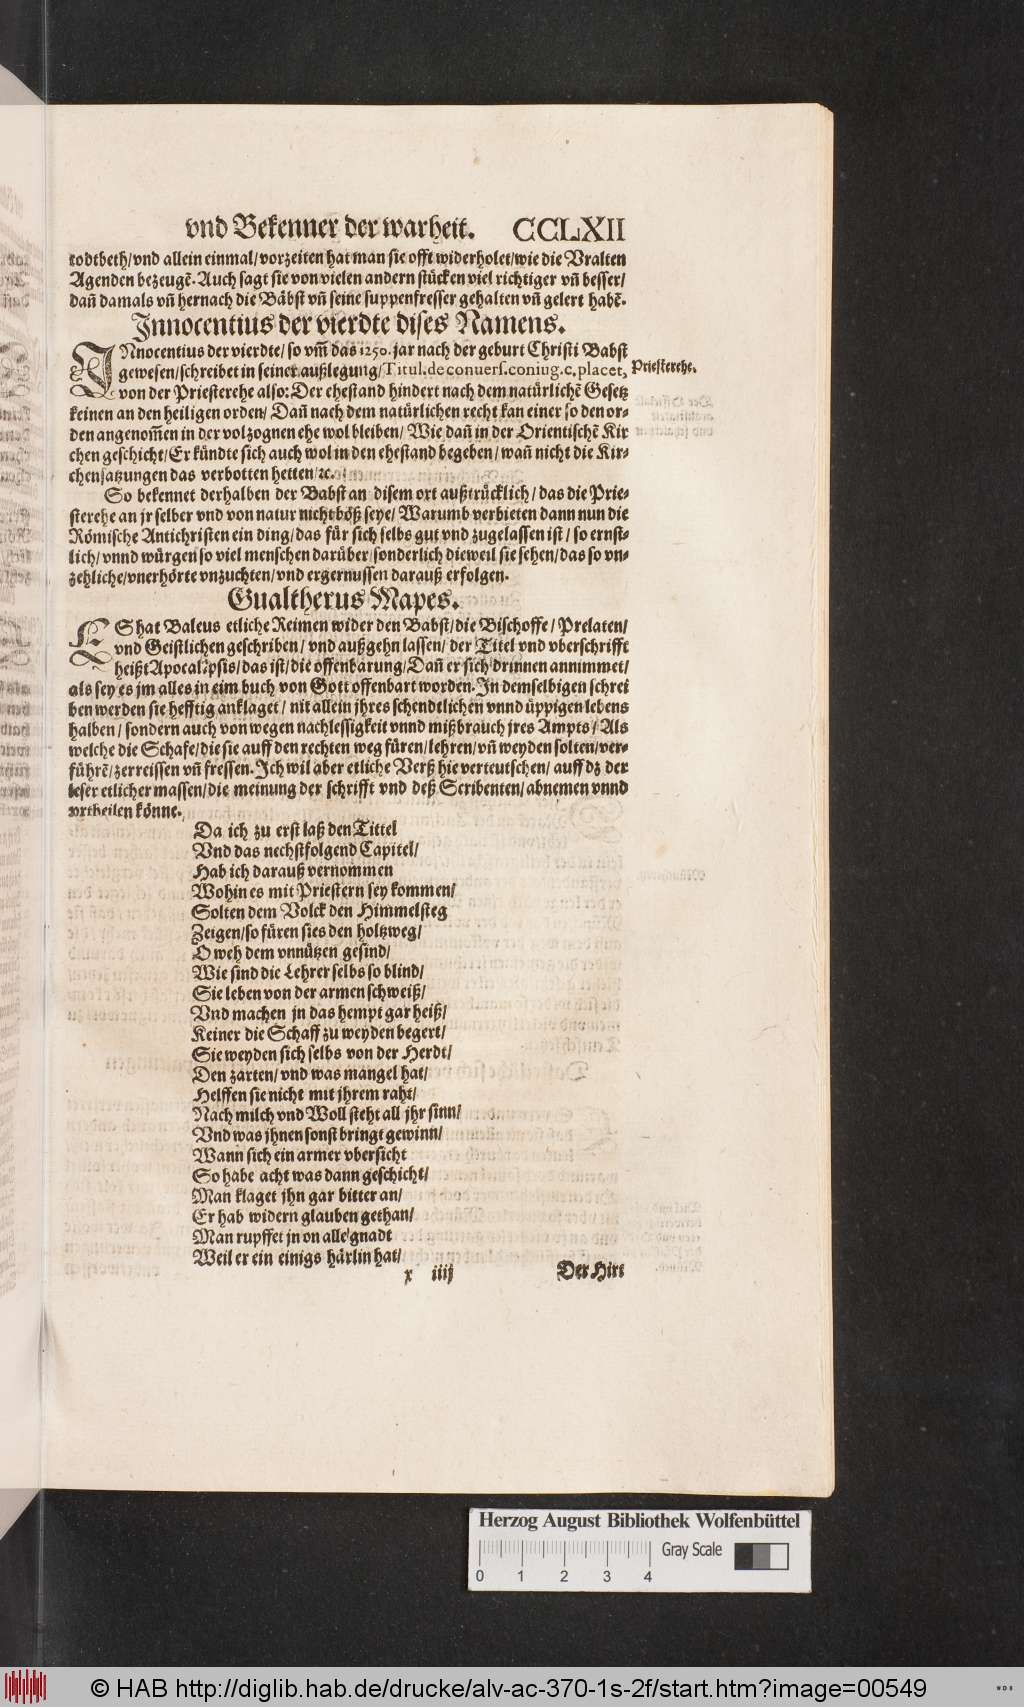 vnd Bekenner der warheit. CCLXII
todtbeth/vnd allein einmal/vorzeiten hat man sie offt widerholet/wie die Vralten
Agenden bezeugẽ. Auch sagt sie von vielen andern stücken viel richtiger vñ besser/
dañ damals vñ hernach die Bäbst vñ seine suppenfresser gehalten vñ gelert habẽ.
Innocentius der vierdte dises Namens.
INnocentius der vierdte/ so vm̃ das 1250. jar nach der geburt Christi Babst
gewesen/schreibet in seiner außlegung/Titul.de conuers.coniug.c,placet, Priesterehe.
von der Priesterehe also: Der ehestand hindert nach dem natürlichẽ Gesetz
keinen an den heiligen orden/ Dañ nach dem natürlichen recht kan einer so den or-
den angenom̃en in der volzognen ehe wol bleiben/ Wie dañ in der Orientischẽ Kir
chen geschicht/Er kündte sich auch wol in den ehestand begeben/wañ nicht die Kir-
chensatzungen das verbotten hetten/ꝛc.
So bekennet derhalben der Babst an disem ort außtrücklich/das die Prie-
sterehe an jr selber vnd von natur nicht böß seye/ Warumb verbieten dann nun die
Römische Antichristen ein ding/das für sich selbs gut vnd zugelassen ist/ so ernst-
lich/vnnd würgen so viel menschen darüber/sonderlich dieweil sie sehen/das so vn-
zehliche/vnerhörte vnzuchten/vnd ergernussen darauß erfolgen.
Gualtherus Mapes.
ES hat Baleus etliche Reimen wider den Babst/die Bischoffe/ Prelaten/
vnd Geistlichen geschriben/ vnd außgehn lassen/ der Titel vnd vberschrifft
heißt Apocalypsis/das ist/die offenbarung/Dañ er sich drinnen annimmet/
als sey es jm alles in eim buch von Gott offenbart worden. In demselbigen schrei
ben werden sie hefftig anklaget/ nit allein jhres schendtlichen vnnd üppigen lebens
halben/ sondern auch von wegen nachlessigkeit vnnd mißbrauch jres Ampts/ Als
welche die Schafe/die sie auff den rechten weg füren/lehren/vñ weyden solten/ver-
führẽ/zerreissen vñ fressen. Ich wil aber etliche Verß hie verteutschen/ auff dz der
leser etlicher massen/die meinung der schrifft vnd deß Scribenten/abnemen vnnd
vrtheilen könne.
Da ich zu erst laß den Tittel
Vnd das nechstfolgend Capitel/
Hab ich darauß vernommen
Wohin es mit Priestern sey kommen/
Solten dem Volck den Himmelsteg
Zeigen/so füren sies den holtzweg/
O weh dem vnnützen gesind/
Wie sind die Lehrer selbs so blind/
Sie leben von der armen schweiß/
Vnd machen jn das hempt gar heiß/
Keiner die Schaff zu weyden begert/
Sie weyden sich selbs von der Herdt/
Den zarten/ vnd was mangel hat/
Helffen sie nicht mit jhrem raht/
Nach milch vnd Woll steht all jhr sinn/
Vnd was jhnen sonst bringt gewinn/
Wann sich ein armer vbersicht
So habe acht was dann geschicht/
Man klaget jhn gar bitter an/
Er hab widern glauben gethan/
Man rupffet jn on alle gnadt
Weil er ein einigs härlin hat/
x iiij Der Hirt
Herzog August Bibliothek Wolfenbüttel
Gray Scale
0 1 2 3 4
© HAB http://diglib.hab.de/drucke/alv-ac-370-1s-2f/start.htm?image=00549